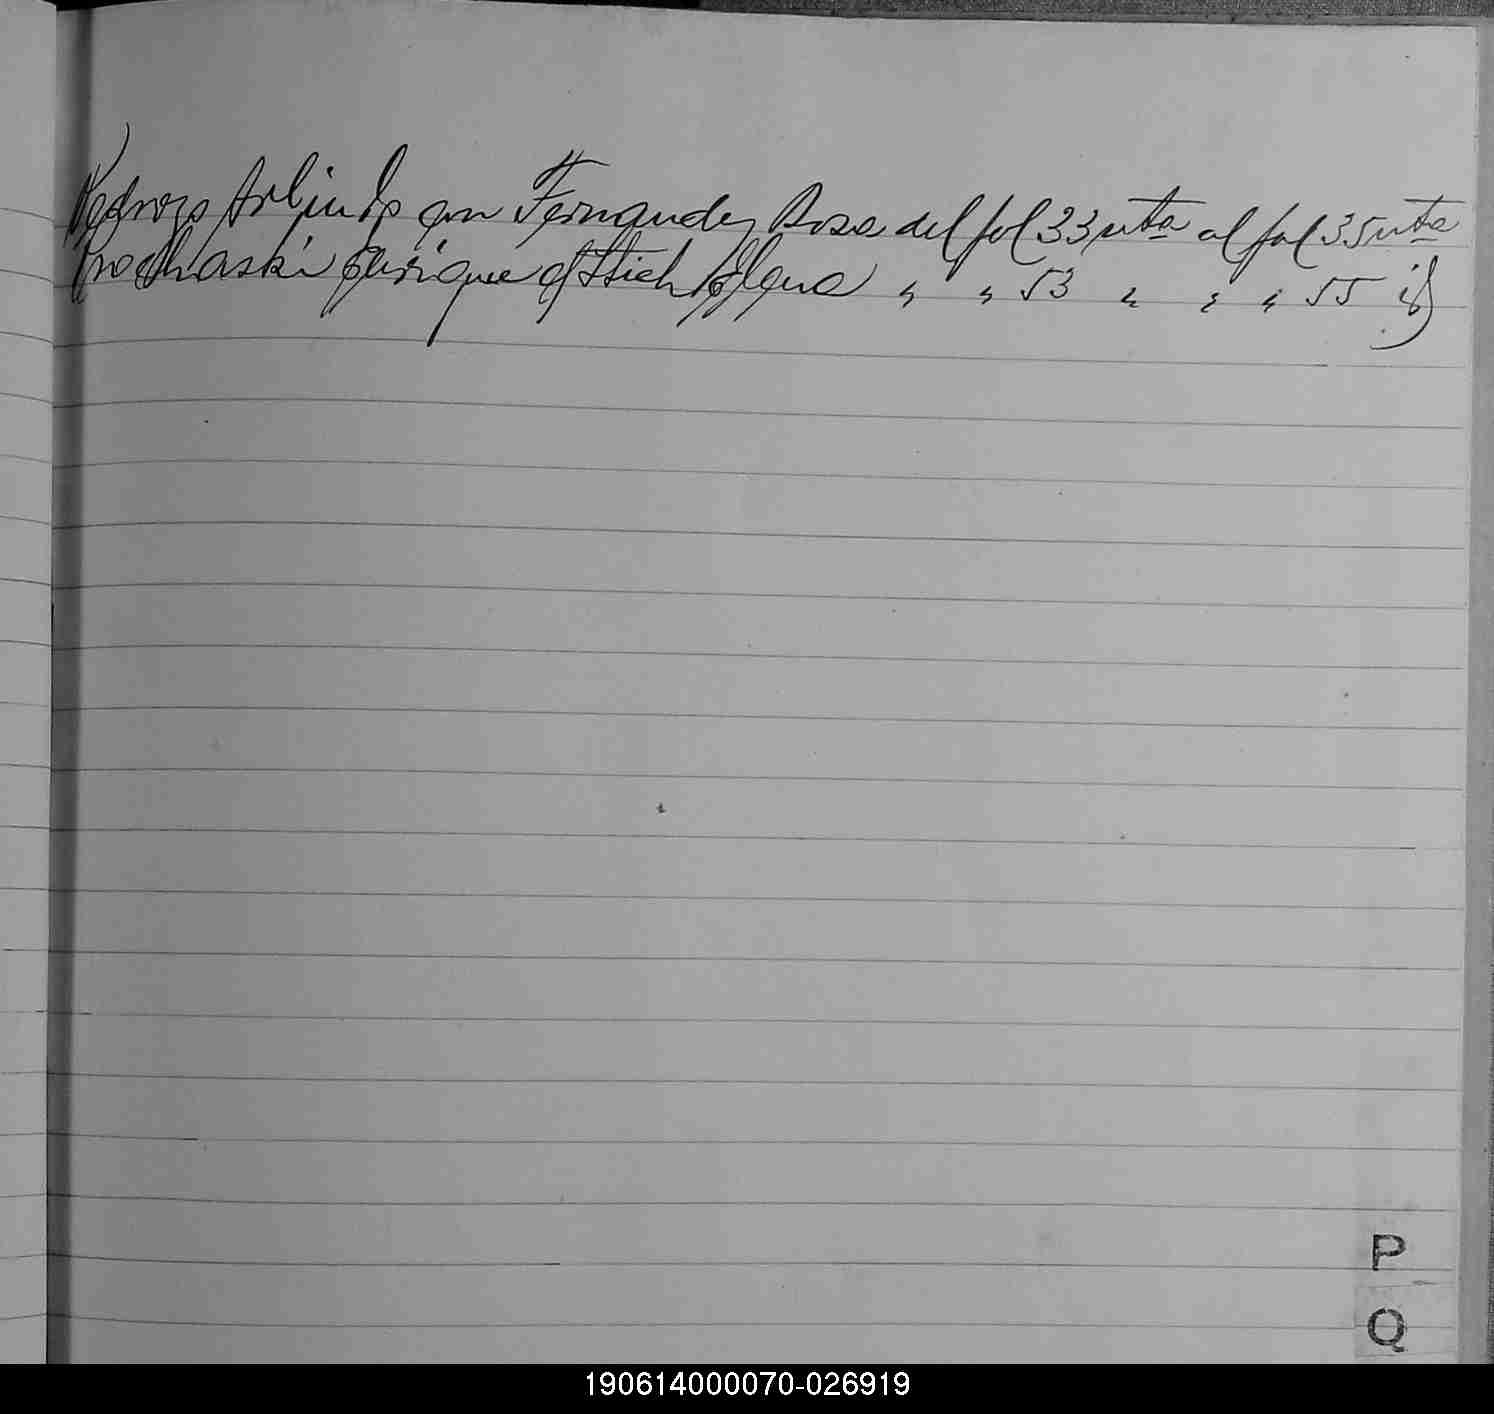 Pedrozo Arlindo con Fernandez Rosa del fol 33 vta al fol 35 vta
Prochaski Enrique Elena " " 53 " " " 55 id
P
Q
190614000070-026919